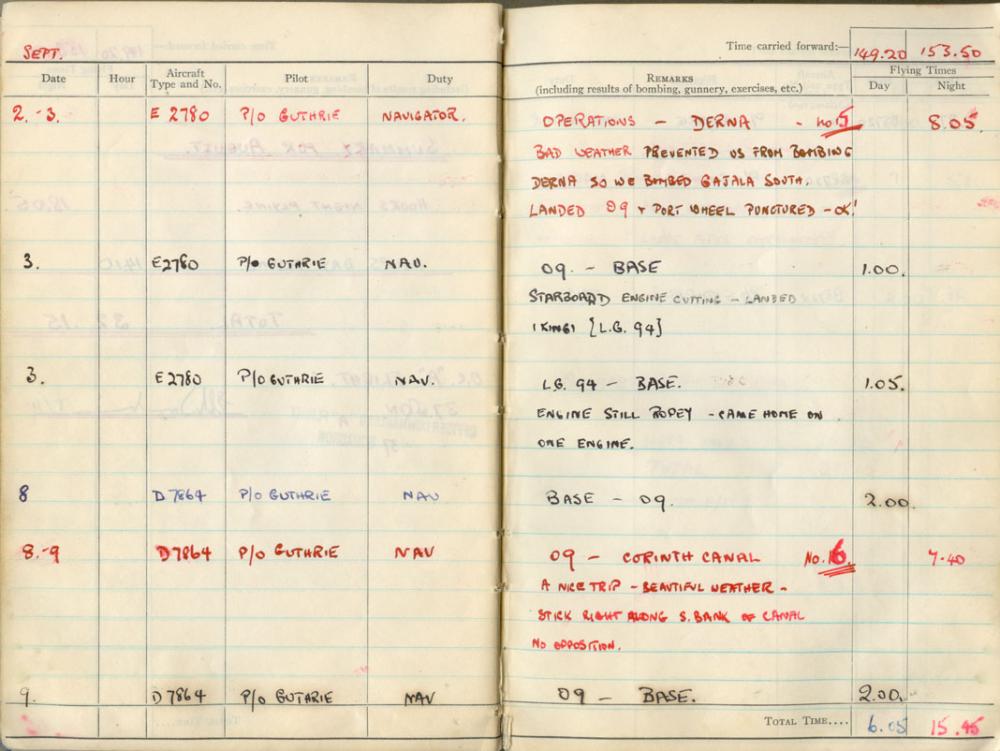 SEPT.
Time carried forward:— 149.20 153.50
Date Hour Aircraft Type and No. Pilot Duty REMARKS (including results of bombing, gunnery, exercises, etc.) Flying Times Day Night
2.-3. E 2780 P/O GUTHRIE NAVIGATOR. OPERATIONS - DERNA - No 5 8.05
BAD WEATHER PREVENTED US FROM BOMBING
DERNA SO WE BOMBED GAJALA SOUTH.
LANDED 09 + PORT WHEEL PUNCTURED - OK!
3. E2780 P/O GUTHRIE NAV. 09. - BASE 1.00.
STARBOARD ENGINE CUTTING - LANDED
'KING' [L.G. 94]
3. E2780 P/O GUTHRIE NAV. L.G. 94 - BASE. 1.05.
ENGINE STILL ROPEY - CAME HOME ON
ONE ENGINE.
8 D7864 P/O GUTHRIE NAV BASE - 09. 2.00.
8.-9 D7864 P/O GUTHRIE NAV 09 - CORINTH CANAL No. 6. 7.40
A NICE TRIP - BEAUTIFUL WEATHER -
STICK RIGHT ALONG S. BANK OF CANAL
NO OPPOSITION.
9. D7864 P/O GUTHRIE NAV 09 - BASE. 2.00.
TOTAL TIME.... 6.05 15.45